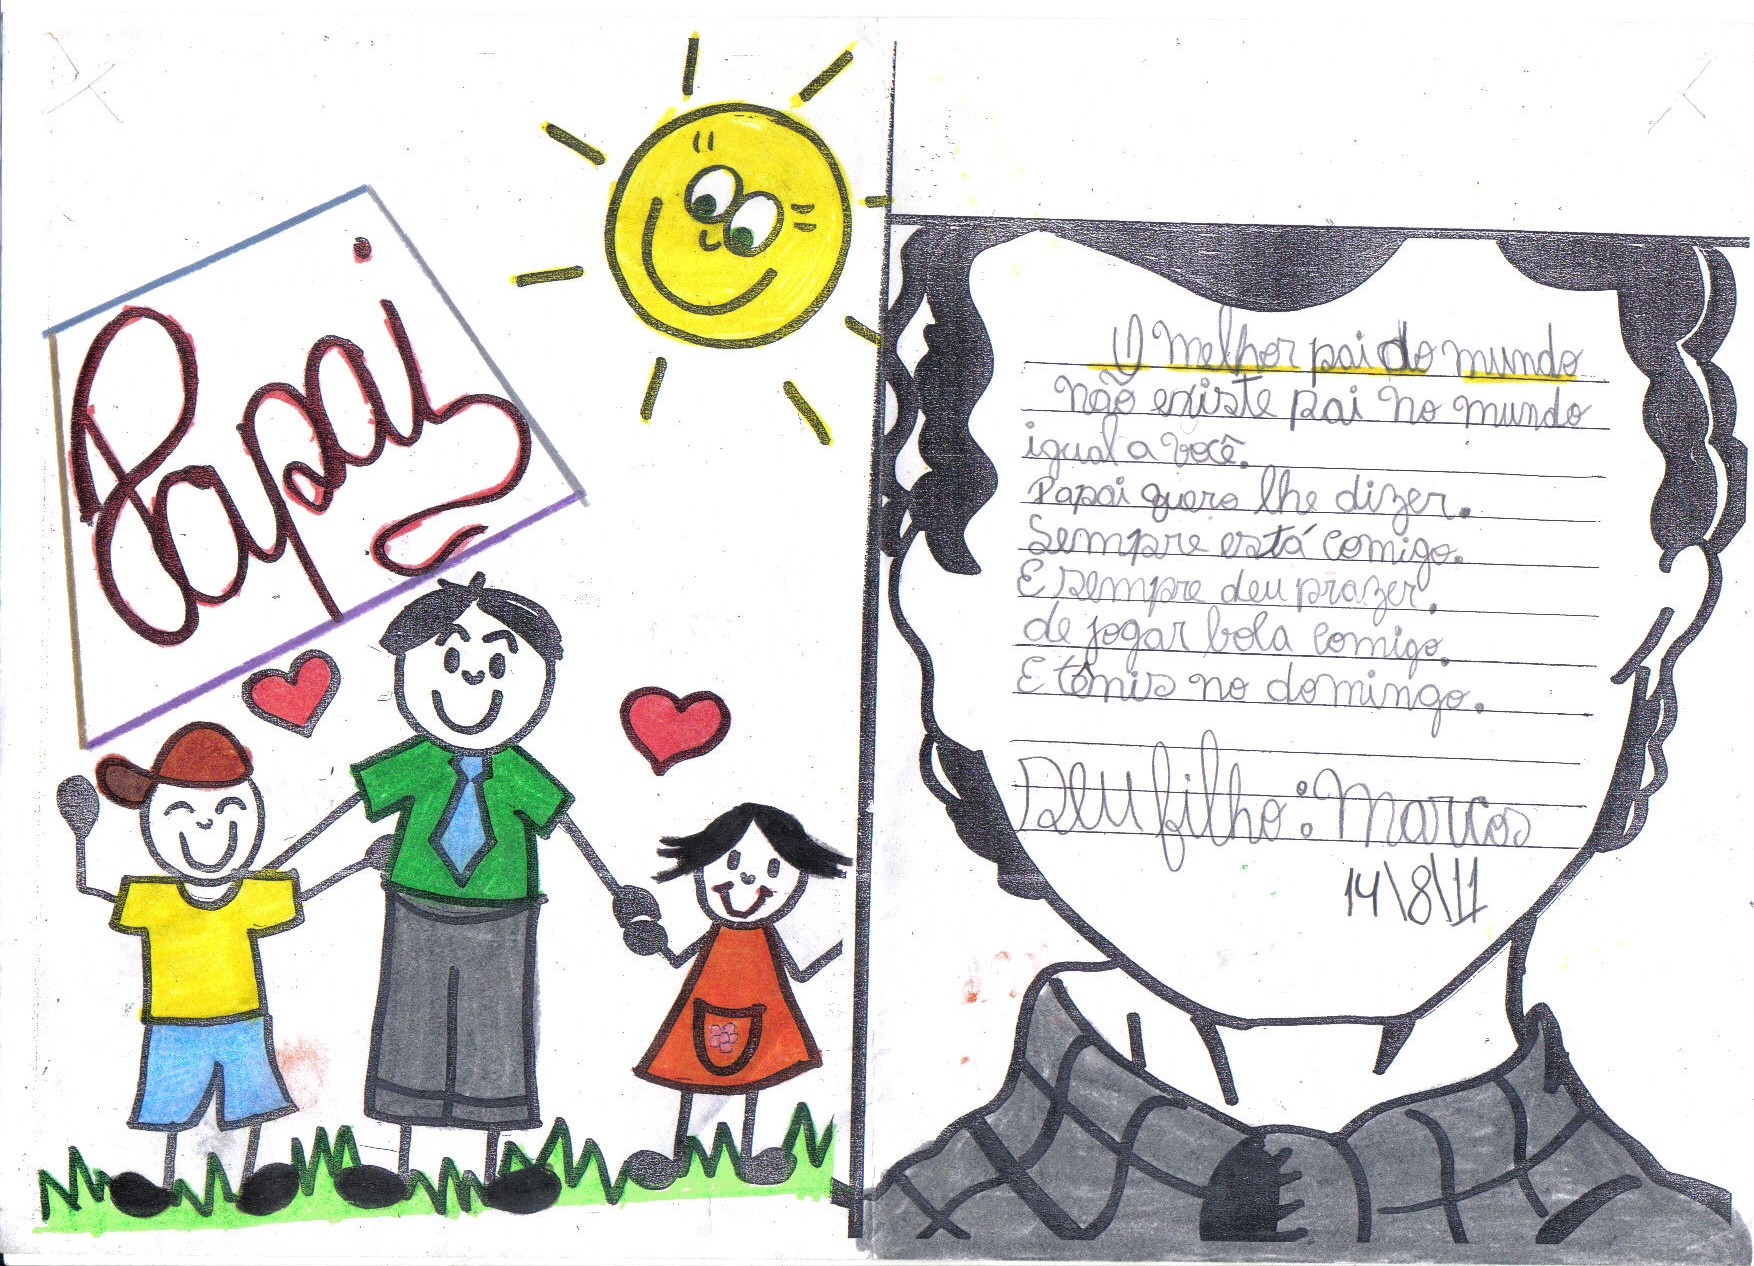 Papai
O melhor pai do mundo
não existe pai no mundo
igual a você.
Papai quero lhe dizer.
Sempre está comigo.
E sempre deu prazer.
de jogar bola comigo.
E tênis no domingo.
Seu filho: Marcos
14\8\11